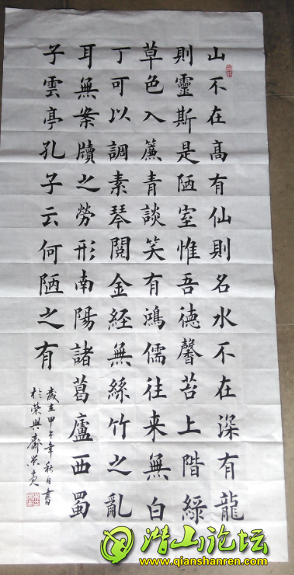 山不在高有仙則名水不在深有龍
則靈斯是陋室惟吾德馨苔上階綠
草色入簾青談笑有鴻儒往来無白
丁可以調素琴閱金經無絲竹之亂
耳無案牘之勞形南陽諸葛廬西蜀
子雲亭孔子云何陋之有
歲在甲午年秋月書
於興齋
潜山论坛
www.qianshanren.com